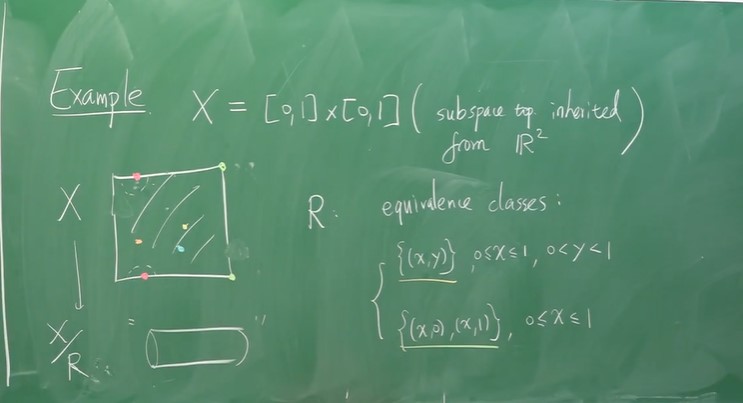 Example. X = [0,1]×[0,1] ( subspace top. inherited
from ℝ² )
X
R: equivalence classes:
{ {(x,y)}, 0≤x≤1, 0<y<1
{(x,0),(x,1)}, 0≤x≤1
X/R " "